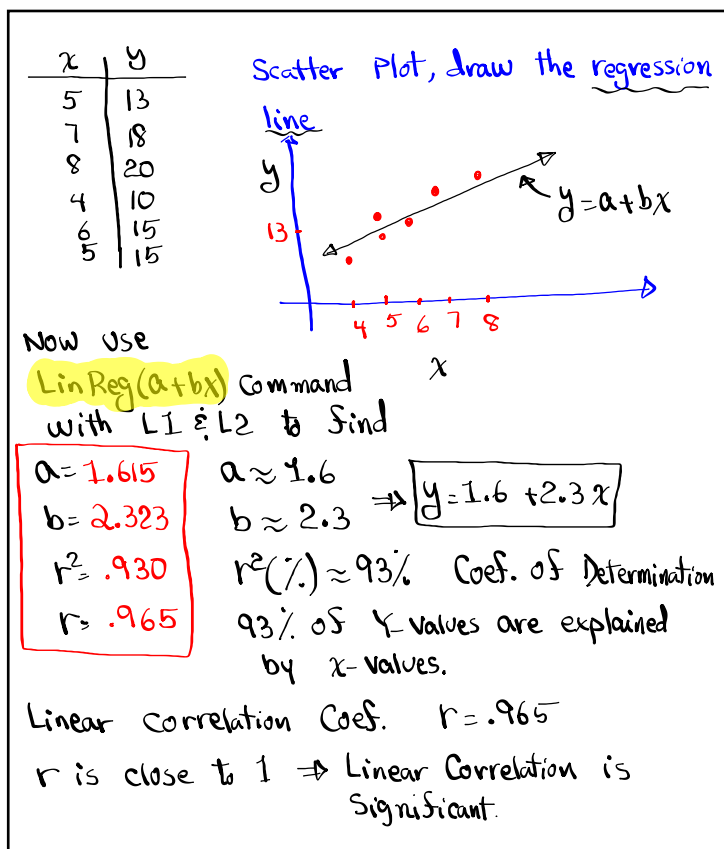 x y
5 13
7 18
8 20
4 10
6 15
5 15
Scatter Plot, draw the regression
line
y
13
y=a+bx
4 5 6 7 8
x
Now use
LinReg(a+bx) Command
with L1 & L2 to find
a= 1.615
b= 2.323
r²= .930
r= .965
a≈1.6
b≈2.3
⇒ y=1.6 +2.3x
r²(%)≈93% Coef. of Determination
93% of Y-values are explained
by x-values.
Linear Correlation Coef. r=.965
r is close to 1 ⇒ Linear Correlation is
Significant.